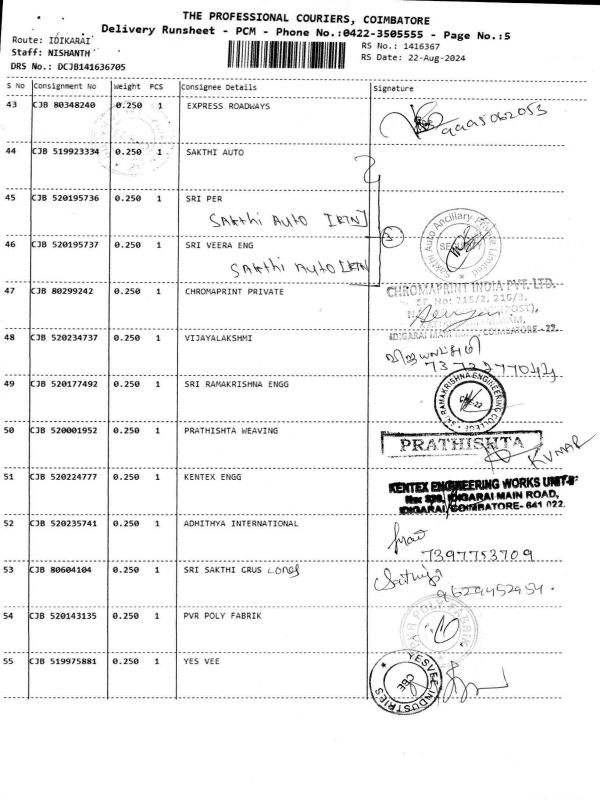 THE PROFESSIONAL COURIERS, COIMBATORE
Delivery Runsheet - PCM - Phone No.:0422-3505555 - Page No.:5
Route: IDIKARAI
RS No.: 1416367
Staff: NISHANTH
RS Date: 22-Aug-2024
DRS No.: DCJB141636705
S No Consignment No Weight PCS Consignee Details Signature
43 CJB 80348240 0.250 1 EXPRESS ROADWAYS
9995062053
44 CJB 519923334 0.250 1 SAKTHI AUTO
45 CJB 520195736 0.250 1 SRI PER
Sakthi Auto [KTN]
3
Sakthi Auto Ancillary Private Limited
SECURITY
46 CJB 520195737 0.250 1 SRI VEERA ENG
Sakthi Auto [KTN]
47 CJB 80299242 0.250 1 CHROMAPRINT PRIVATE
CHROMAPRINT INDIA PVT. LTD.
SF. No: 215/2, 215/3,
IDIGARAI MAIN ROAD, COIMBATORE - 22.
48 CJB 520234737 0.250 1 VIJAYALAKSHMI
விஜயலட்சுமி
49 CJB 520177492 0.250 1 SRI RAMAKRISHNA ENGG
SRI RAMAKRISHNA ENGINEERING COLLEGE
50 CJB 520001952 0.250 1 PRATHISHTA WEAVING
PRATHISHTA
KUMAR
51 CJB 520224777 0.250 1 KENTEX ENGG
KENTEX ENGINEERING WORKS UNIT-II
IDIGARAI MAIN ROAD,
IDIGARAI, COIMBATORE- 641 022.
52 CJB 520235741 0.250 1 ADHITHYA INTERNATIONAL
7397753709
53 CJB 80604104 0.250 1 SRI SAKTHI GRUS Cones
Sathiya
9629452954.
54 CJB 520143135 0.250 1 PVR POLY FABRIK
PVR POLY FABRIK
55 CJB 519975881 0.250 1 YES VEE
YESVEE INDUSTRIES
CBE